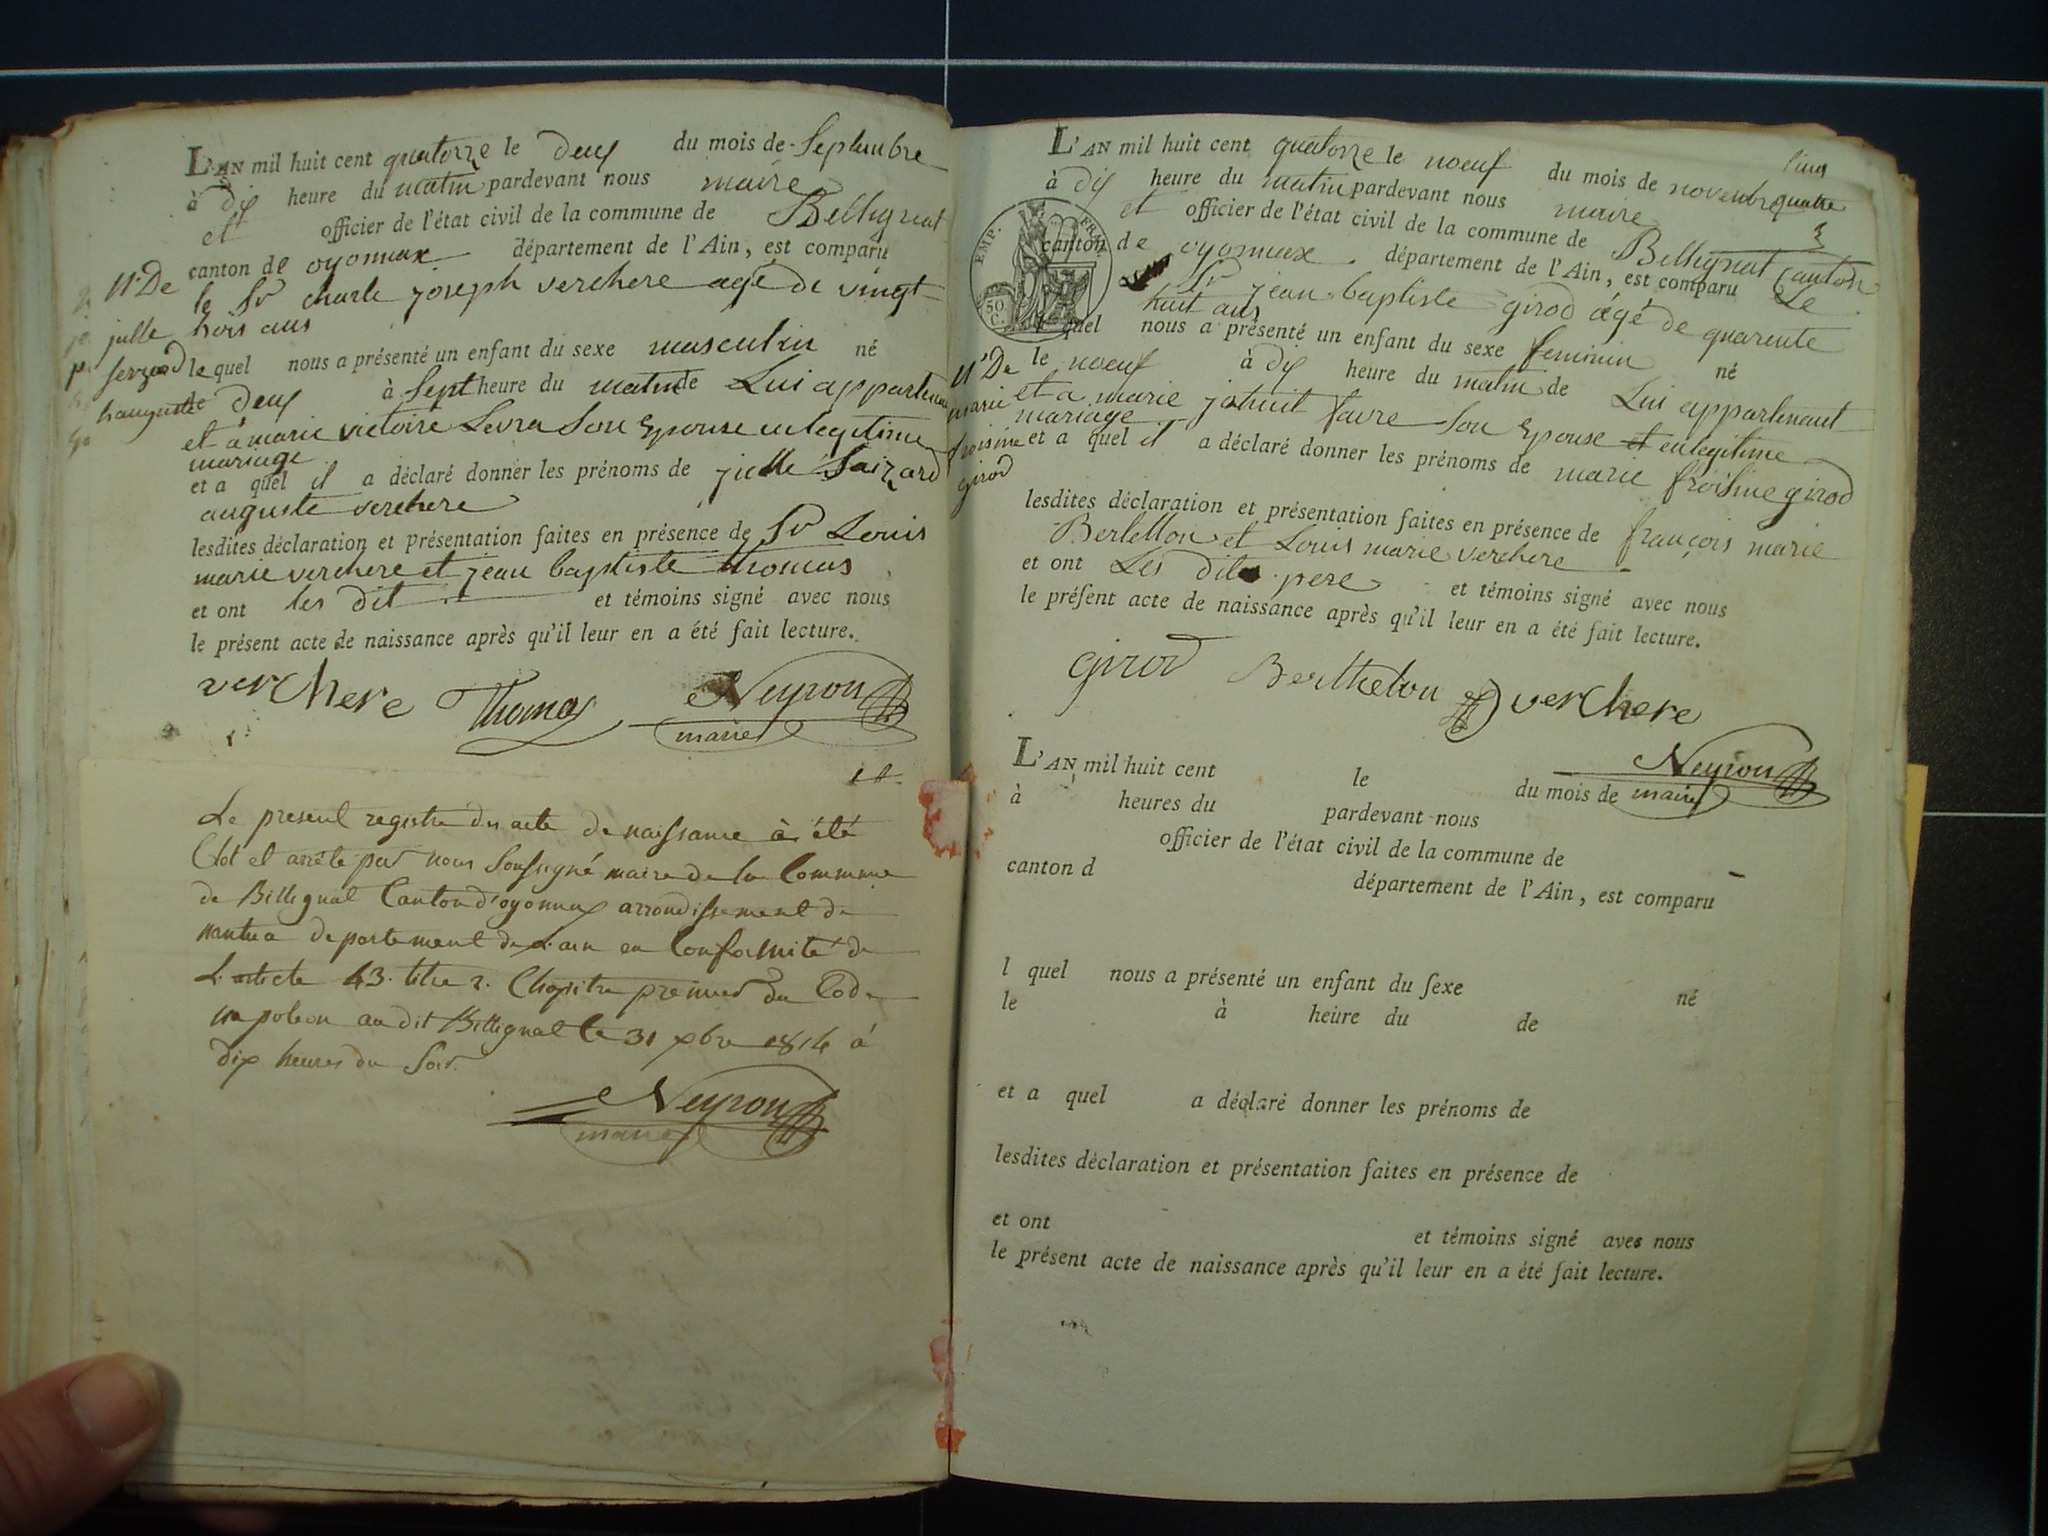 L'AN mil huit cent quatorze le deux du mois de Septembre
à dix heure du matin pardevant nous maire
et officier de l'état civil de la commune de Bellignat
canton de oyonnax département de l'Ain, est comparu
le Sr charle joseph verchere agé de vingt
trois ans
le quel nous a présenté un enfant du sexe masculin né
le deux à Sept heure du matin de Lui appartenant
et a marie victoire Levra Son Epouse en legitime
mariage
et a quel il a déclaré donner les prénoms de julle
auguste verchere
lesdites déclaration et présentation faites en présence de Sr Louis
marie verchere et jean baptiste thomas
et ont les dit et témoins signé avec nous
le présent acte de naissance après qu'il leur en a été fait lecture.
N. De
julle
verchere Thomas Neyron
maire
Le present registre des acte de naissance à été
Clot et arrêté par nous Soussigné maire de la Commune
de Bellignat Canton d'oyonnax arrondissement de
nantua departement de L'ain en Conformité de
L'article 43. titre 2. Chapitre premier du Code
napoleon au dit Bellignat le 31 xbre 1814 à
dix heures du Soir.
Neyron
maire
L'AN mil huit cent quatorze le noeuf du mois de novembre
quatre
à dix heure du matin pardevant nous maire
et officier de l'état civil de la commune de Bellignat canton
canton de oyonnax département de l'Ain, est comparu Le
Sr jean baptiste girod âgé de quarente
huit ans
l quel nous a présenté un enfant du sexe feminin né
le noeuf à dix heure du matin de Lui appartenant
et a marie favre Son Epouse et en legitime
mariage
et a quel il a déclaré donner les prénoms de marie froisine girod
lesdites déclaration et présentation faites en présence de françois marie
Bertellon et Louis marie verchere
et ont Les dits pere et témoins signé avec nous
le présent acte de naissance après qu'il leur en a été fait lecture.
EMP. FRAN.
50 C.
N. De
marie
froisine
girod
girod Berthelon verchere
Neyron
maire
L'AN mil huit cent le du mois de
à heures du pardevant nous
officier de l'état civil de la commune de
canton d département de l'Ain, est comparu
l quel nous a présenté un enfant du sexe né
le à heure du de
et a quel a déclaré donner les prénoms de
lesdites déclaration et présentation faites en présence de
et ont et témoins signé avec nous
le présent acte de naissance après qu'il leur en a été fait lecture.